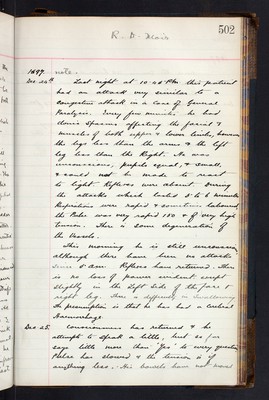 502
R. D. Nair
1899. note.
Dec. 24th. Last night at 10.45 P.M. this patient
had an attack very similar to a
Congestive attack in a case of General
Paralysis. Every five minutes he had
clonic spasms affecting the facial &
muscles of both upper & lower limbs, however
the legs less than the arms & the left
leg less than the Right. He was
unconscious, pupils equal, & small,
& could not be made to react
to light. Reflexes were absent during
the attacks which lasted 5 & 6 minutes
Respirations were rapid & sometimes laboured,
the Pulse was very rapid 150 & of very high
tension. There is some degeneration of
the Vessels.
This morning he is still unconscious
although there have been no attacks
since 5 am. Reflexes have returned. There
is no loss of power evident except
slightly in the Left side of the face &
right leg. There is difficulty in swallowing
the presumption is that he has had a Cerebral
Haemorrhage
Dec 25. Consciousness has returned & he
attempts to speak a little, but so far
says little more than "Yes" to every question
Pulse has slowed & the tension is if
anything less. His bowels have not moved